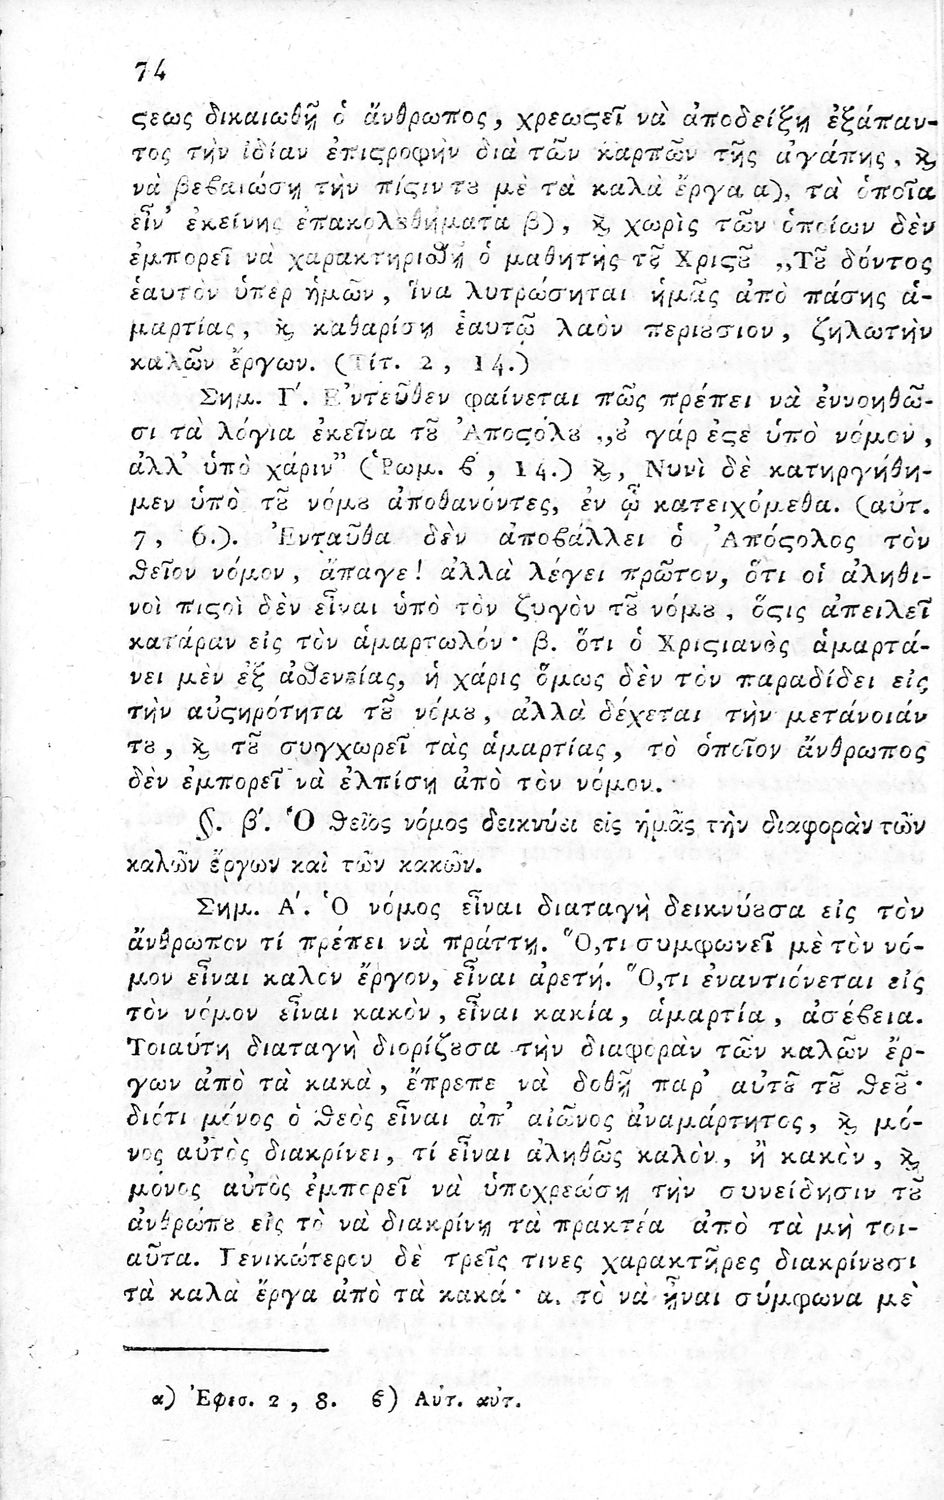 74
ϛεως δικαιωθῇ ὁ ἄνθρωπος, χρεωϛεῖ νὰ ἀποδείξῃ ἐξάπαν-
τος τὴν ἰδίαν ἐπιϛροφὴν διὰ τῶν καρπῶν τῆς ἀγάπης, ϗ
νὰ βεϐαιώσῃ τὴν πίϛιν τȣ μὲ τὰ καλὰ ἔργα α), τὰ ὁποῖα
εἶν' ἐκείνης ἐπακολȣθήματα β), ϗ χωρὶς τῶν ὁποίων δὲν
ἐμπορεῖ νὰ χαρακτηρισθῇ ὁ μαθητὴς τȣ͂ Χριϛȣ͂ „Τȣ͂ δόντος
ἑαυτὸν ὑπὲρ ἡμῶν, ἵνα λυτρώσηται ἡμᾶς ἀπὸ πάσης ἁ-
μαρτίας, ϗ καθαρίσῃ ἑαυτῷ λαὸν περιȣ́σιον, ζηλωτὴν
καλῶν ἔργων. (Τίτ. 2, 14.)
Σημ. Γ'. Ἐντεῦθεν φαίνεται πῶς πρέπει νὰ ἐννοηθῶ-
σι τὰ λόγια ἐκεῖνα τȣ͂ Ἀποϛόλȣ „ȣ̓ γάρ ἐϛε ὑπὸ νόμον,
ἀλλ' ὑπὸ χάριν” (Ῥωμ. ϐ, 14.) ϗ, Νυνὶ δὲ κατηργήθη-
μεν ὑπὸ τȣ͂ νόμȣ ἀποθανόντες, ἐν ᾧ κατειχόμεθα. (αὐτ.
7, 6.). Ἐνταῦθα δὲν ἀποϐάλλει ὁ Ἀπόϛολος τὸν
ϑεῖον νόμον, ἄπαγε! ἀλλὰ λέγει πρῶτον, ὅτι οἱ ἀληθι-
νοὶ πιϛοὶ δὲν εἶναι ὑπὸ τὸν ζυγὸν τȣ͂ νόμȣ, ὅϛις ἀπειλεῖ
κατάραν εἰς τὸν ἁμαρτωλόν· β. ὅτι ὁ Χριϛιανὸς ἁμαρτά-
νει μὲν ἐξ ἀσθενείας, ἡ χάρις ὅμως δὲν τὸν παραδίδει εἰς
τὴν αὐϛηρότητα τȣ͂ νόμȣ, ἀλλὰ δέχεται τὴν μετάνοιάν
τȣ, ϗ τȣ͂ συγχωρεῖ τὰς ἁμαρτίας, τὸ ὁποῖον ἄνθρωπος
δὲν ἐμπορεῖ νὰ ἐλπίσῃ ἀπὸ τὸν νόμον.
§. β'. Ὁ ϑεῖος νόμος δεικνύει εἰς ἡμᾶς τὴν διαφορὰν τῶν
καλῶν ἔργων καὶ τῶν κακῶν.
Σημ. Α'. Ὁ νόμος εἶναι διαταγὴ δεικνύȣσα εἰς τὸν
ἄνθρωπον τί πρέπει νὰ πράττῃ. Ὅ,τι συμφωνεῖ μὲ τὸν νό-
μον εἶναι καλὸν ἔργον, εἶναι ἀρετή. Ὅ,τι ἐναντιόνεται εἰς
τὸν νόμον εἶναι κακὸν, εἶναι κακία, ἁμαρτία, ἀσέϐεια.
Τοιαύτη διαταγὴ διορίζȣσα τὴν διαφορὰν τῶν καλῶν ἔρ-
γων ἀπὸ τὰ κακὰ, ἔπρεπε νὰ δοθῇ παρ' αὐτȣ͂ τȣ͂ ϑεȣ͂·
διότι μόνος ὁ ϑεὸς εἶναι ἀπ' αἰῶνος ἀναμάρτητος, ϗ μό-
νος αὐτὸς διακρίνει, τί εἶναι ἀληθῶς καλὸν, ἢ κακὸν, ϗ
μόνος αὐτὸς ἐμπορεῖ νὰ ὑποχρεώσῃ τὴν συνείδησιν τȣ͂
ἀνθρώπȣ εἰς τὸ νὰ διακρίνῃ τὰ πρακτέα ἀπὸ τὰ μὴ τοι-
αῦτα. Γενικώτερον δὲ τρεῖς τινες χαρακτῆρες διακρίνȣσι
τὰ καλὰ ἔργα ἀπὸ τὰ κακά· α. τὸ νὰ ᾖναι σύμφωνα μὲ
α) Ἐφεσ. 2, 8. ϐ) Αὐτ. αὐτ.